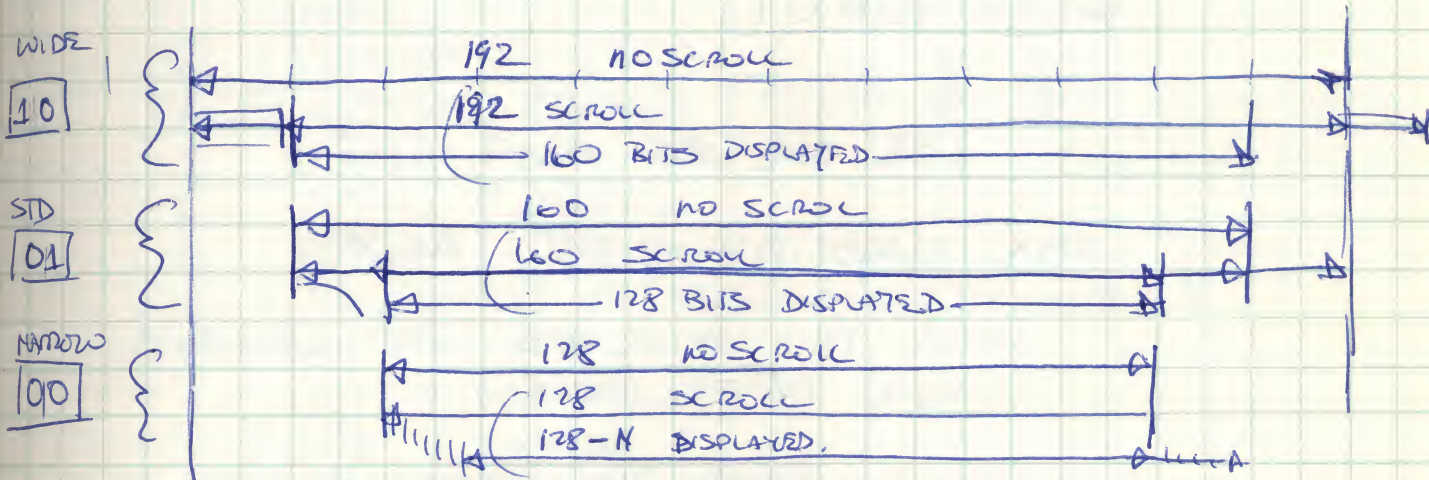 WIDE
192 NO SCROLL
10
192 SCROLL
160 BITS DISPLAYED
STD
160 NO SCROL
01
160 SCROLL
128 BITS DISPLAYED
NARROW
128 NO SCROLL
00
128 SCROLL
128-N DISPLAYED.